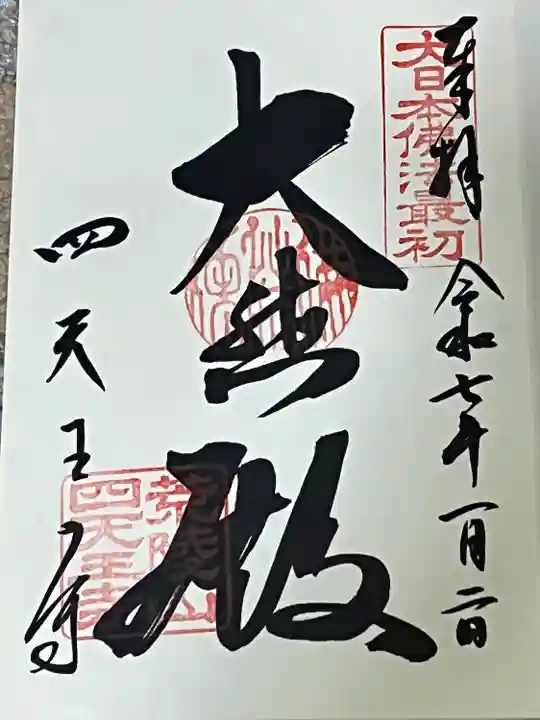 奉拝
大日本佛法最初
令和七年一月二日
大悲殿
四天王寺
荒陵山
四天王寺